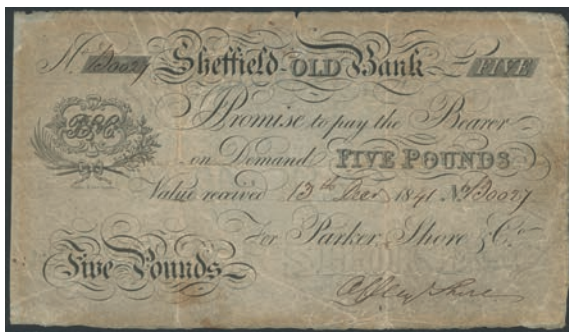 No. B0027 Sheffield OLD Bank £ FIVE
I Promise to pay the Bearer
on Demand FIVE POUNDS
Value received 13th Decr 1841 No. B0027
For Parker, Shore & Co.
Five Pounds
Shore